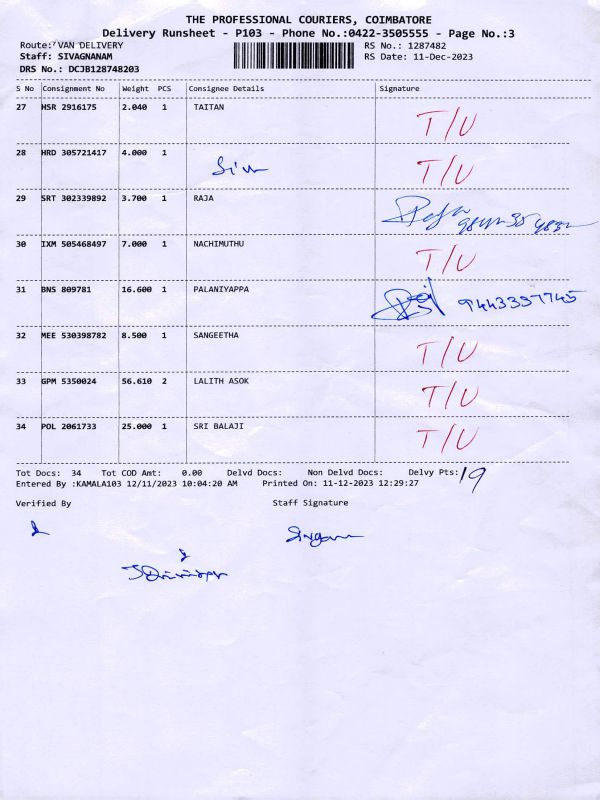 THE PROFESSIONAL COURIERS, COIMBATORE
Delivery Runsheet - P103 - Phone No.:0422-3505555 - Page No.:3
Route: VAN DELIVERY RS No.: 1287482
Staff: SIVAGNANAM RS Date: 11-Dec-2023
DRS No.: DCJB128748203
S No Consignment No Weight PCS Consignee Details Signature
27 HSR 2916175 2.040 1 TAITAN T/U
28 HRD 305721417 4.000 1 T/U
29 SRT 302339892 3.700 1 RAJA
30 IXM 505468497 7.000 1 NACHIMUTHU T/U
31 BNS 809781 16.600 1 PALANIYAPPA 9443357745
32 MEE 530398782 8.500 1 SANGEETHA T/U
33 GPM 5350024 56.610 2 LALITH ASOK T/U
34 POL 2061733 25.000 1 SRI BALAJI T/U
Tot Docs: 34 Tot COD Amt: 0.00 Delvd Docs: Non Delvd Docs: Delvy Pts: 19
Entered By :KAMALA103 12/11/2023 10:04:20 AM Printed On: 11-12-2023 12:29:27
Verified By Staff Signature